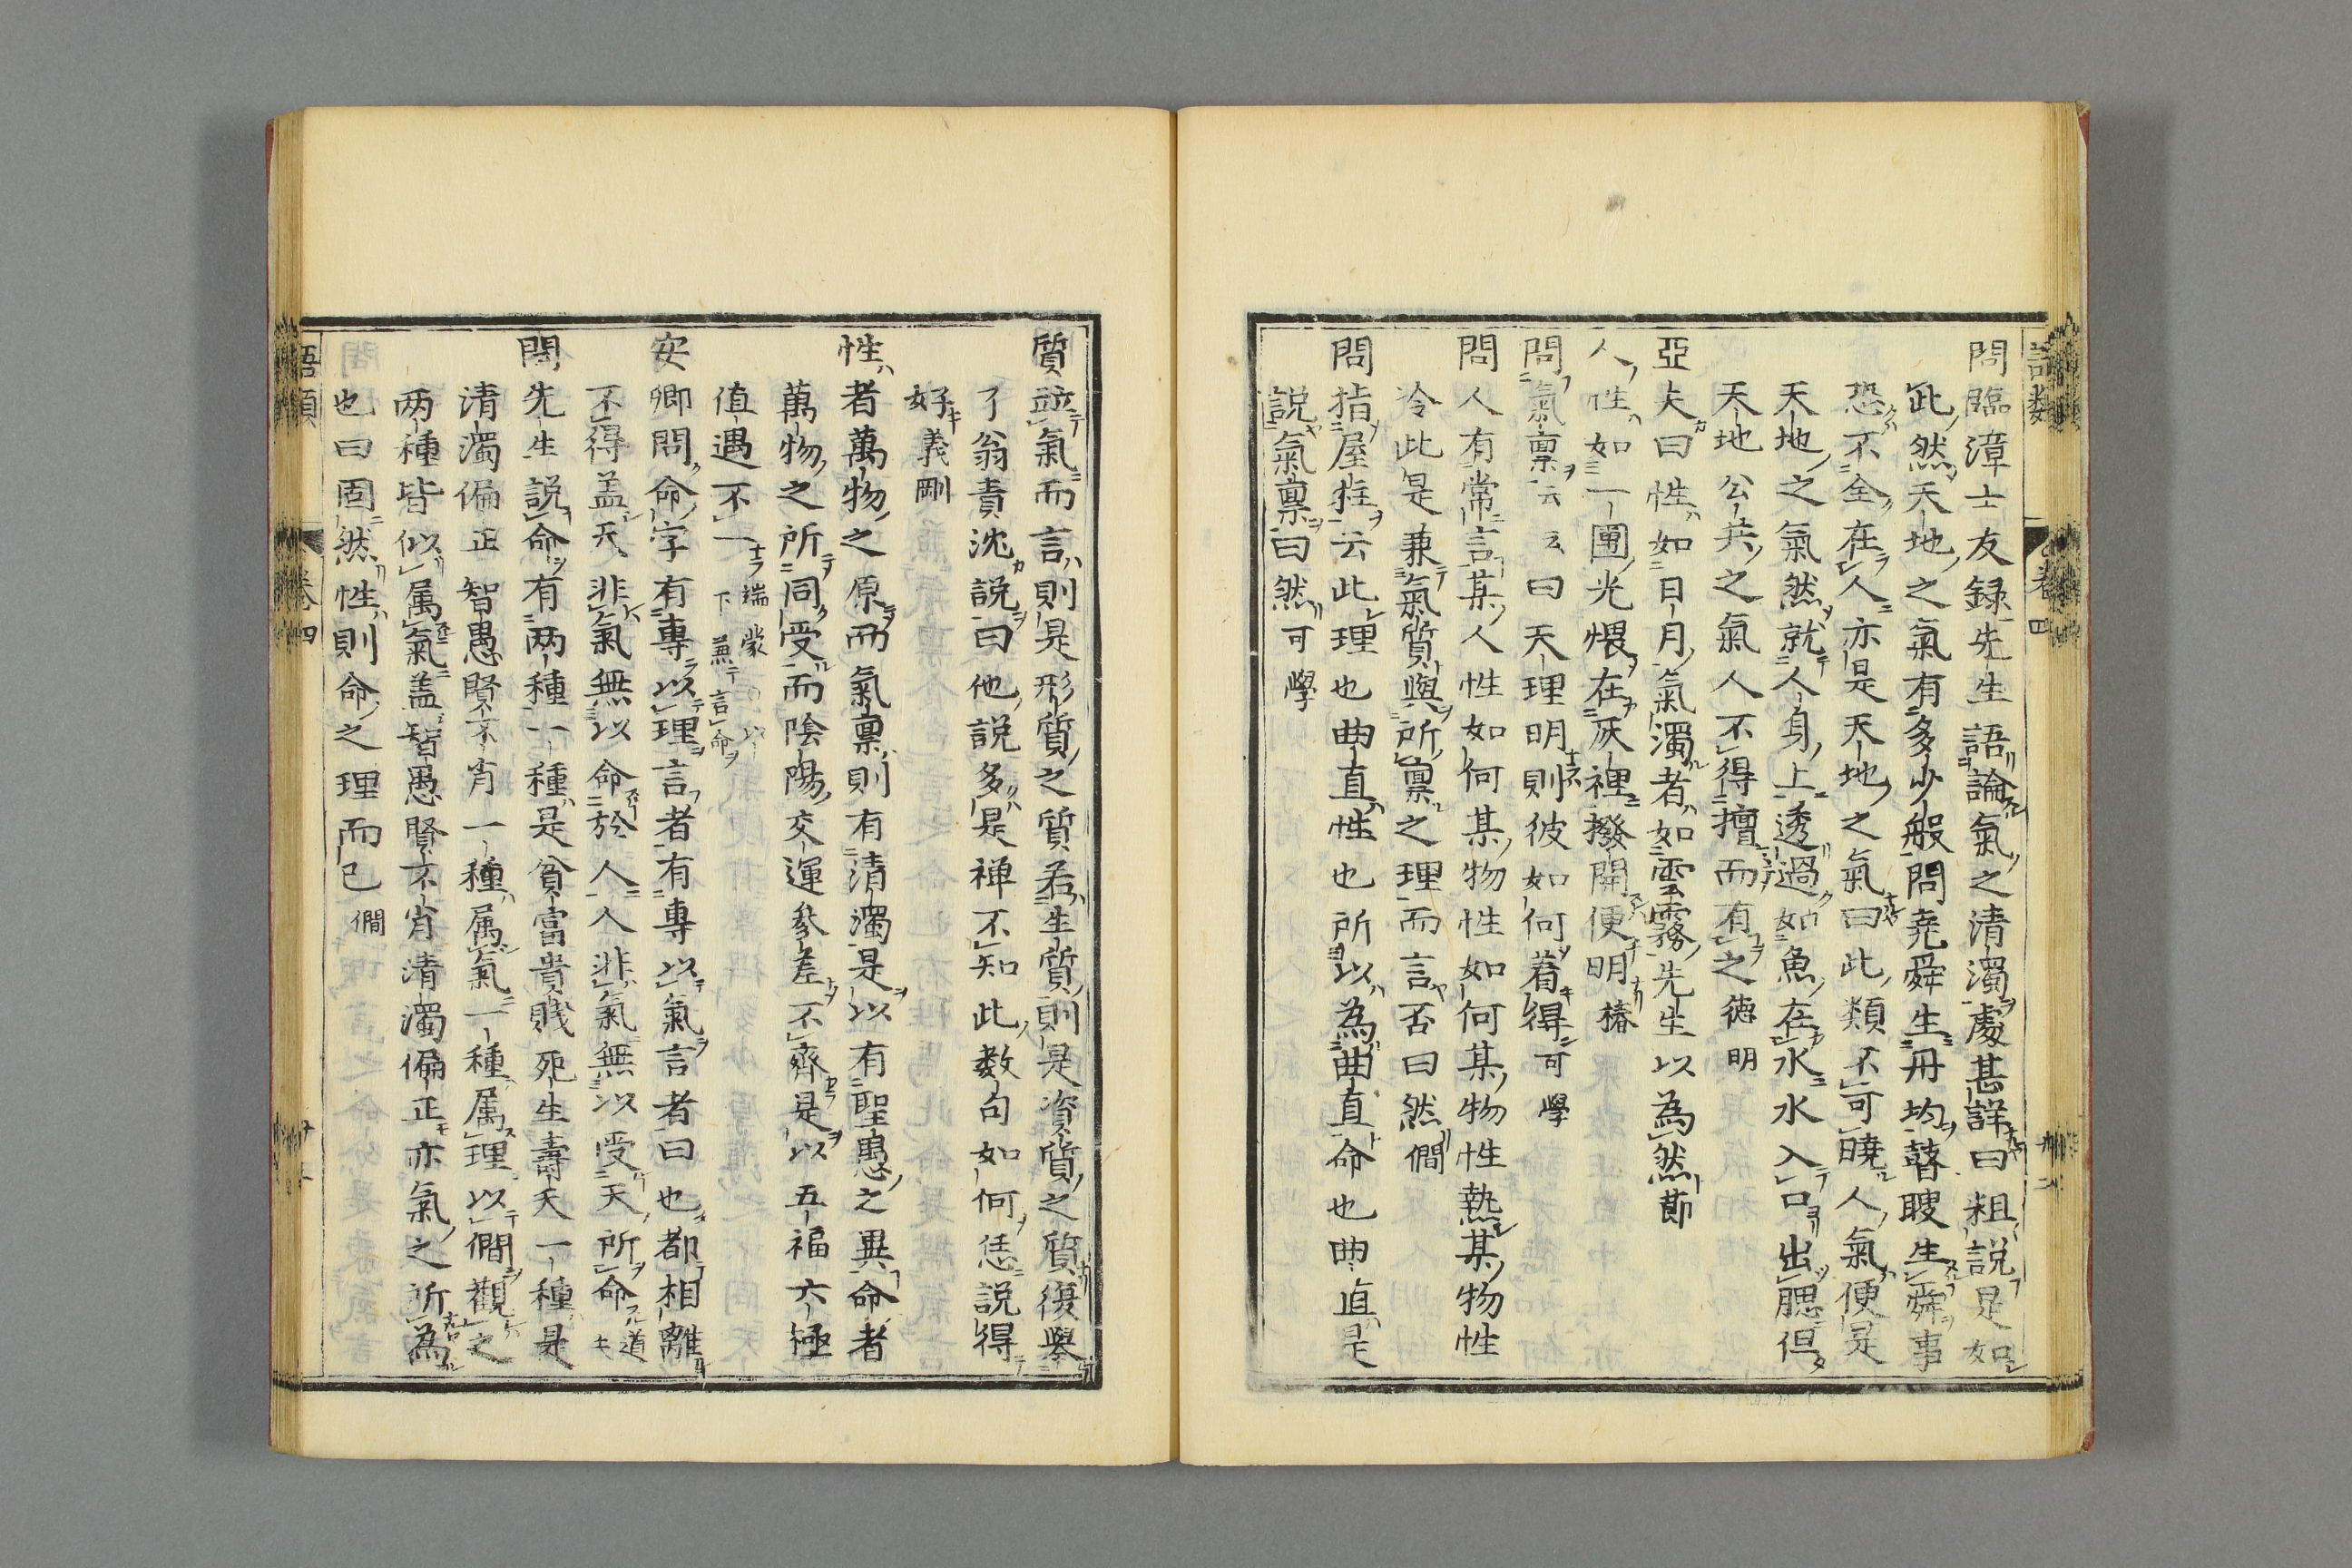 問臨漳士友録先生語論氣之清濁處甚詳曰粗說是如
此然天地之氣有多少般問堯舜生丹均瞽瞍生舜事
恐不全在人亦是天地之氣曰此類不可曉人氣便是
天地之氣然就人身上透過如魚在水水入口出腮但
天地公共之氣人不得擅而有之德明
亞夫曰性如日月氣濁者如雲霧先生以為然節
人性如一團光煨在灰裡撥開便明椿
問氣稟云云曰天理明則彼如何着得可學
問人有常言某人性如何某物性如何某物性熱某物性
冷此是兼氣質與所稟之理而言否曰然僩
問指屋柱云此理也曲直性也所以為曲直命也曲直是
說氣稟曰然可學
語類
卷四
質並氣而言則是形質之質若生質則是資質之質復舉
了翁責沈說曰他說多是禅不知此数句如何恁說得
好義剛
性者萬物之原而氣稟則有清濁是以有聖愚之異命者
萬物之所同受而陰陽交運參差不齊是以五福六極
值遇不一端蒙○以下兼言命
安卿問命字有專以理言者有專以氣言者曰也都相離
不得盖天非氣無以命於人人非氣無以受天所命道夫
問先生說命有两種一種是貧富貴賤死生壽夭一種是
清濁偏正智愚賢不肖一種属氣一種属理以僩觀之
两種皆似属氣盖智愚賢不肖清濁偏正亦氣之所為
也曰固然性則命之理而已僩
語類
卷四